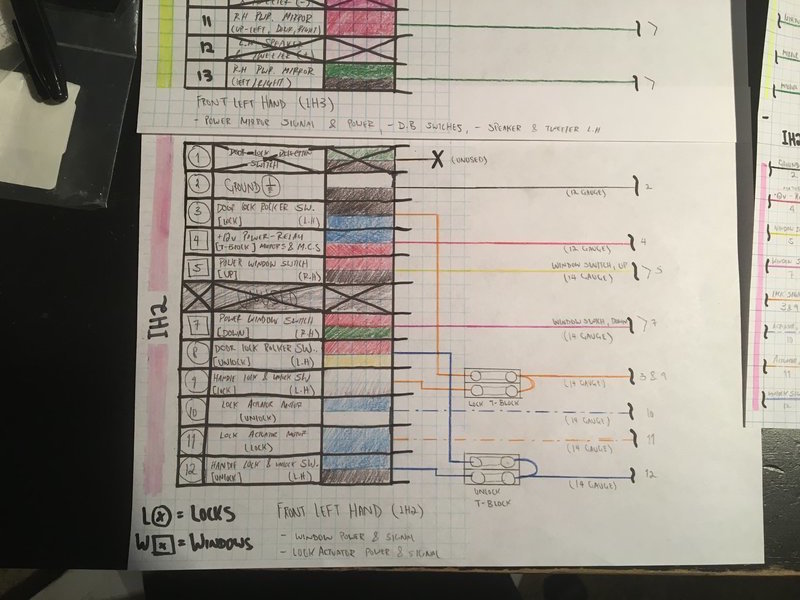 11 R.H PWR. MIRROR
(UP-LEFT, DOWN, RIGHT)
7
12
13 R.H PWR. MIRROR
(LEFT/RIGHT)
7
FRONT LEFT HAND (IH3)
- POWER MIRROR SIGNAL & POWER, - D.B SWICHES, - SPEAKER & TWEETER L.H
IH2
1 DOOR-LOCK DETECTION
SWITCH
X (UNUSED)
2 GROUND
(12 GAUGE) 2
3 DOOR LOCK ROCKER SW.
[LOCK] (L.H)
4 +12V POWER-RELAY
[T-BLOCK] MOTORS & M.C.S
(12 GAUGE) 4
5 POWER WINDOW SWITCH
[UP] (R.H)
WINDOW SWITCH, UP
(14 GAUGE) 5
7 POWER WINDOW SWITCH
[DOWN] (R.H)
WINDOW SWITCH, DOWN
(14 GAUGE) 7
8 DOOR LOCK ROCKER SW.
[UNLOCK] (L.H)
9 HANDLE LOCK & UNLOCK SW
[LOCK] (L.H)
LOCK T-BLOCK
(14 GAUGE) 3 & 9
10 LOCK ACTUATOR MOTOR
(UNLOCK)
(14 GAUGE) 10
11 LOCK ACTUATOR MOTOR
(LOCK)
(14 GAUGE) 11
12 HANDLE LOCK & UNLOCK SW.
[UNLOCK] (L.H)
UNLOCK
T-BLOCK
(14 GAUGE) 12
L = LOCKS
W = WINDOWS
FRONT LEFT HAND (IH2)
- WINDOW POWER & SIGNAL
- LOCK ACTUATOR POWER & SIGNAL
IH2